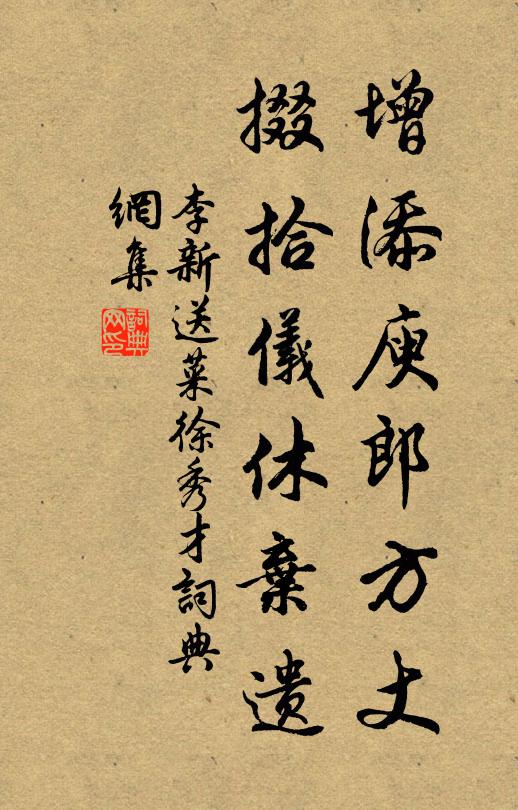 增添庾郎方丈
掇拾儀休棄遺
李新送菜徐秀才詞典
網集
詞典網印